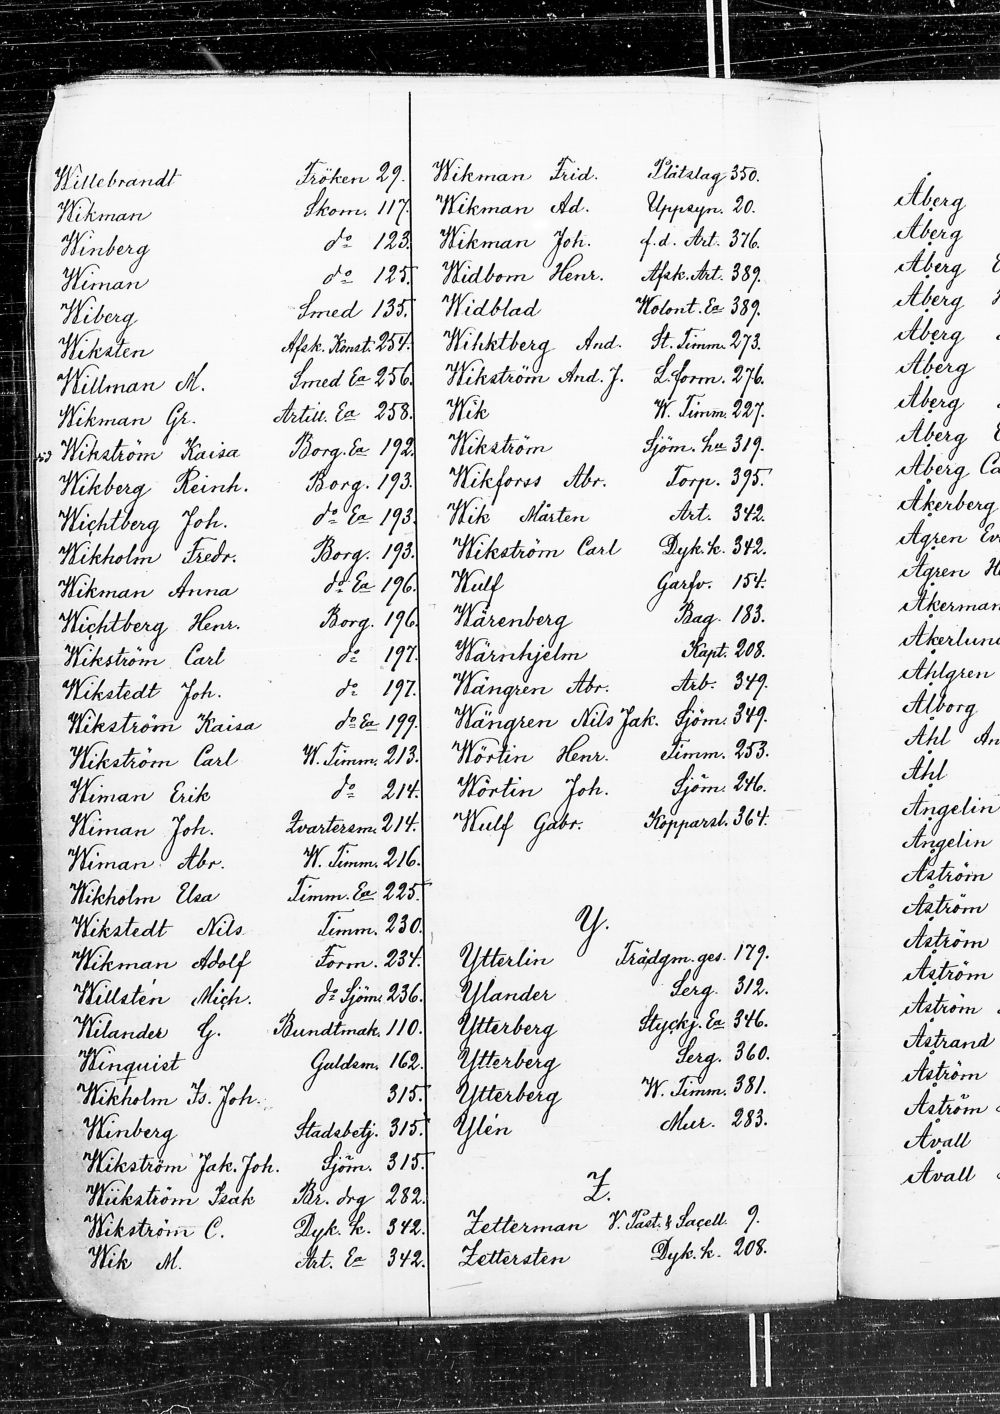 Willebrandt Fröken 29.
Wikman Skom. 117.
Winberg do 123.
Wiman do 125.
Wiberg Smed 135.
Wiksten Afsk. Konst. 254.
Willman M. Smed Ea 256.
Wikman Gr. Artill. Ea 258.
Wikström Kaisa Borg. Ea 192.
Wikberg Reinh. Borg. 193.
Wichtberg Joh. do Ea 193.
Wikholm Fredr. Borg. 193.
Wikman Anna do Ea 196.
Wichtberg Henr. Borg. 196.
Wikström Carl do 197.
Wikstedt Joh. do 197.
Wikström Kaisa do Ea 199.
Wikström Carl W. Timm. 213.
Wiman Erik do 214.
Wiman Joh. Qvartersm. 214.
Wiman Abr. W. Timm. 216.
Wikholm Elsa Timm. Ea 225.
Wikstedt Nils Timm. 230.
Wikman Adolf Form. 234.
Willstén Mich. do Sjöm. 236.
Wilander G. Bundtmak. 110.
Winquist Guldsm. 162.
Wikholm Is. Joh. 315.
Winberg Stadsbetj. 315.
Wikström Jak. Joh. Sjöm. 315.
Wiikström Isak Br. drg 282.
Wikström C. Dyk. k. 342.
Wik M. Art. Ea 342.
Wikman Frid. Plåtslag 350.
Wikman Ad. Uppsyn. 20.
Wikman Joh. f.d. Art. 376.
Widbom Henr. Afsk. Art. 389.
Widblad Wolont. Ea 389.
Wihktberg And. St. Timm. 273.
Wikström And. J. L. form. 276.
Wik W. Timm. 227.
Wikström Sjöm. hu 319.
Wikforss Abr. Torp. 395.
Wik Mårten Art. 342.
Wikström Carl Dyk. k. 342.
Wulf Garfv. 154.
Wärenberg Bag. 183.
Wärnhjelm Kapt. 208.
Wängren Abr. Arb. 349.
Wängren Nils Jak. Sjöm. 349.
Wörtin Henr. Timm. 253.
Wörtin Joh. Sjöm. 246.
Wulf Gabr. Kopparsl. 364.
Y.
Ytterlin Trädgm. ges. 179.
Ylander Serg. 312.
Ytterberg Styckj. Ea 346.
Ytterberg Serg. 360.
Ytterberg W. Timm. 381.
Ylén Mur. 283.
Z.
Zetterman V. Past. & Sacell. 9.
Zettersten Dyk. k. 208.
Åberg
Åberg
Åberg
Åberg
Åberg
Åberg
Åberg
Åberg
Åberg
Åkerberg
Ågren
Ågren
Åkerman
Åkerlund
Åhlgren
Ålborg
Åhl
Åhl
Ångelin
Ångelin
Åström
Åström
Åström
Åström
Åström
Åstrand
Åström
Åström
Åvall
Åvall